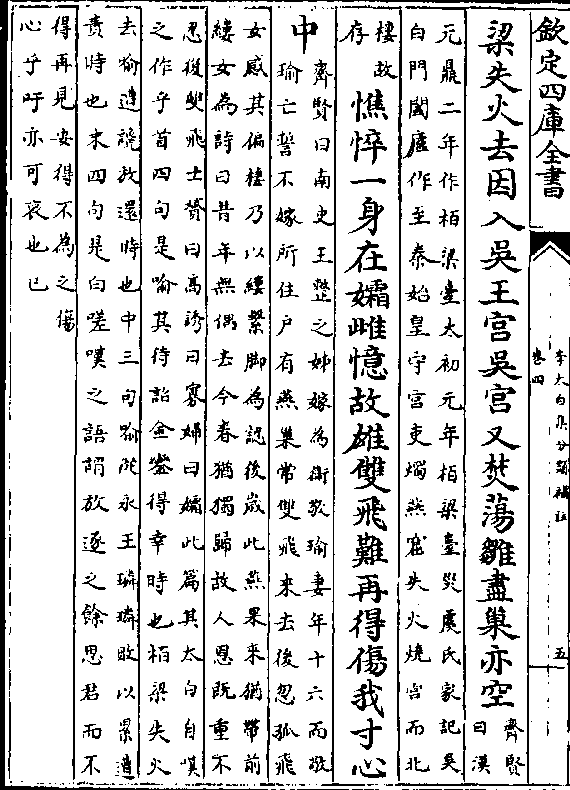 欽定四庫全書
李太白集分類補註
卷四
五
梁失火去因入吳王宮吳宮又焚蕩雛盡巢亦空
齊賢
曰漢
元鼎二年作栢梁臺太初元年栢梁臺災虞氏家記吳
白門闔廬作至秦始皇守宮吏燭燕窟失火燒宮而北
樓故
存
憔悴一身在孀雌憶故雄雙飛難再得傷我寸心
中
齊賢曰南史王整之姊嫁為衛敬瑜妻年十六而敬
瑜亡誓不嫁所住戶有燕巢常雙飛來去後忽孤飛
女感其偏棲乃以縷繫脚為認後歲此燕果來猶帶前
縷女為詩曰昔年無偶去今春猶獨歸故人恩既重不
忍復雙飛士贇曰高誘曰寡婦曰孀此篇其太白自嘆
之作乎首四句是喻其待詔金鑾得幸時也栢梁失火
去喻遭讒放還時也中三句喻從永王璘璘敗以累遭
責時也末四句是白嗟嘆之語謂放逐之餘思君而不
得再見安得不為之傷
心乎吁亦可哀也已